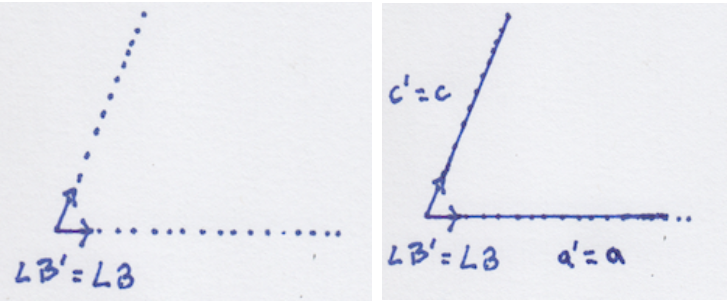 ∠B' = ∠B
c' = c
∠B' = ∠B
a' = a